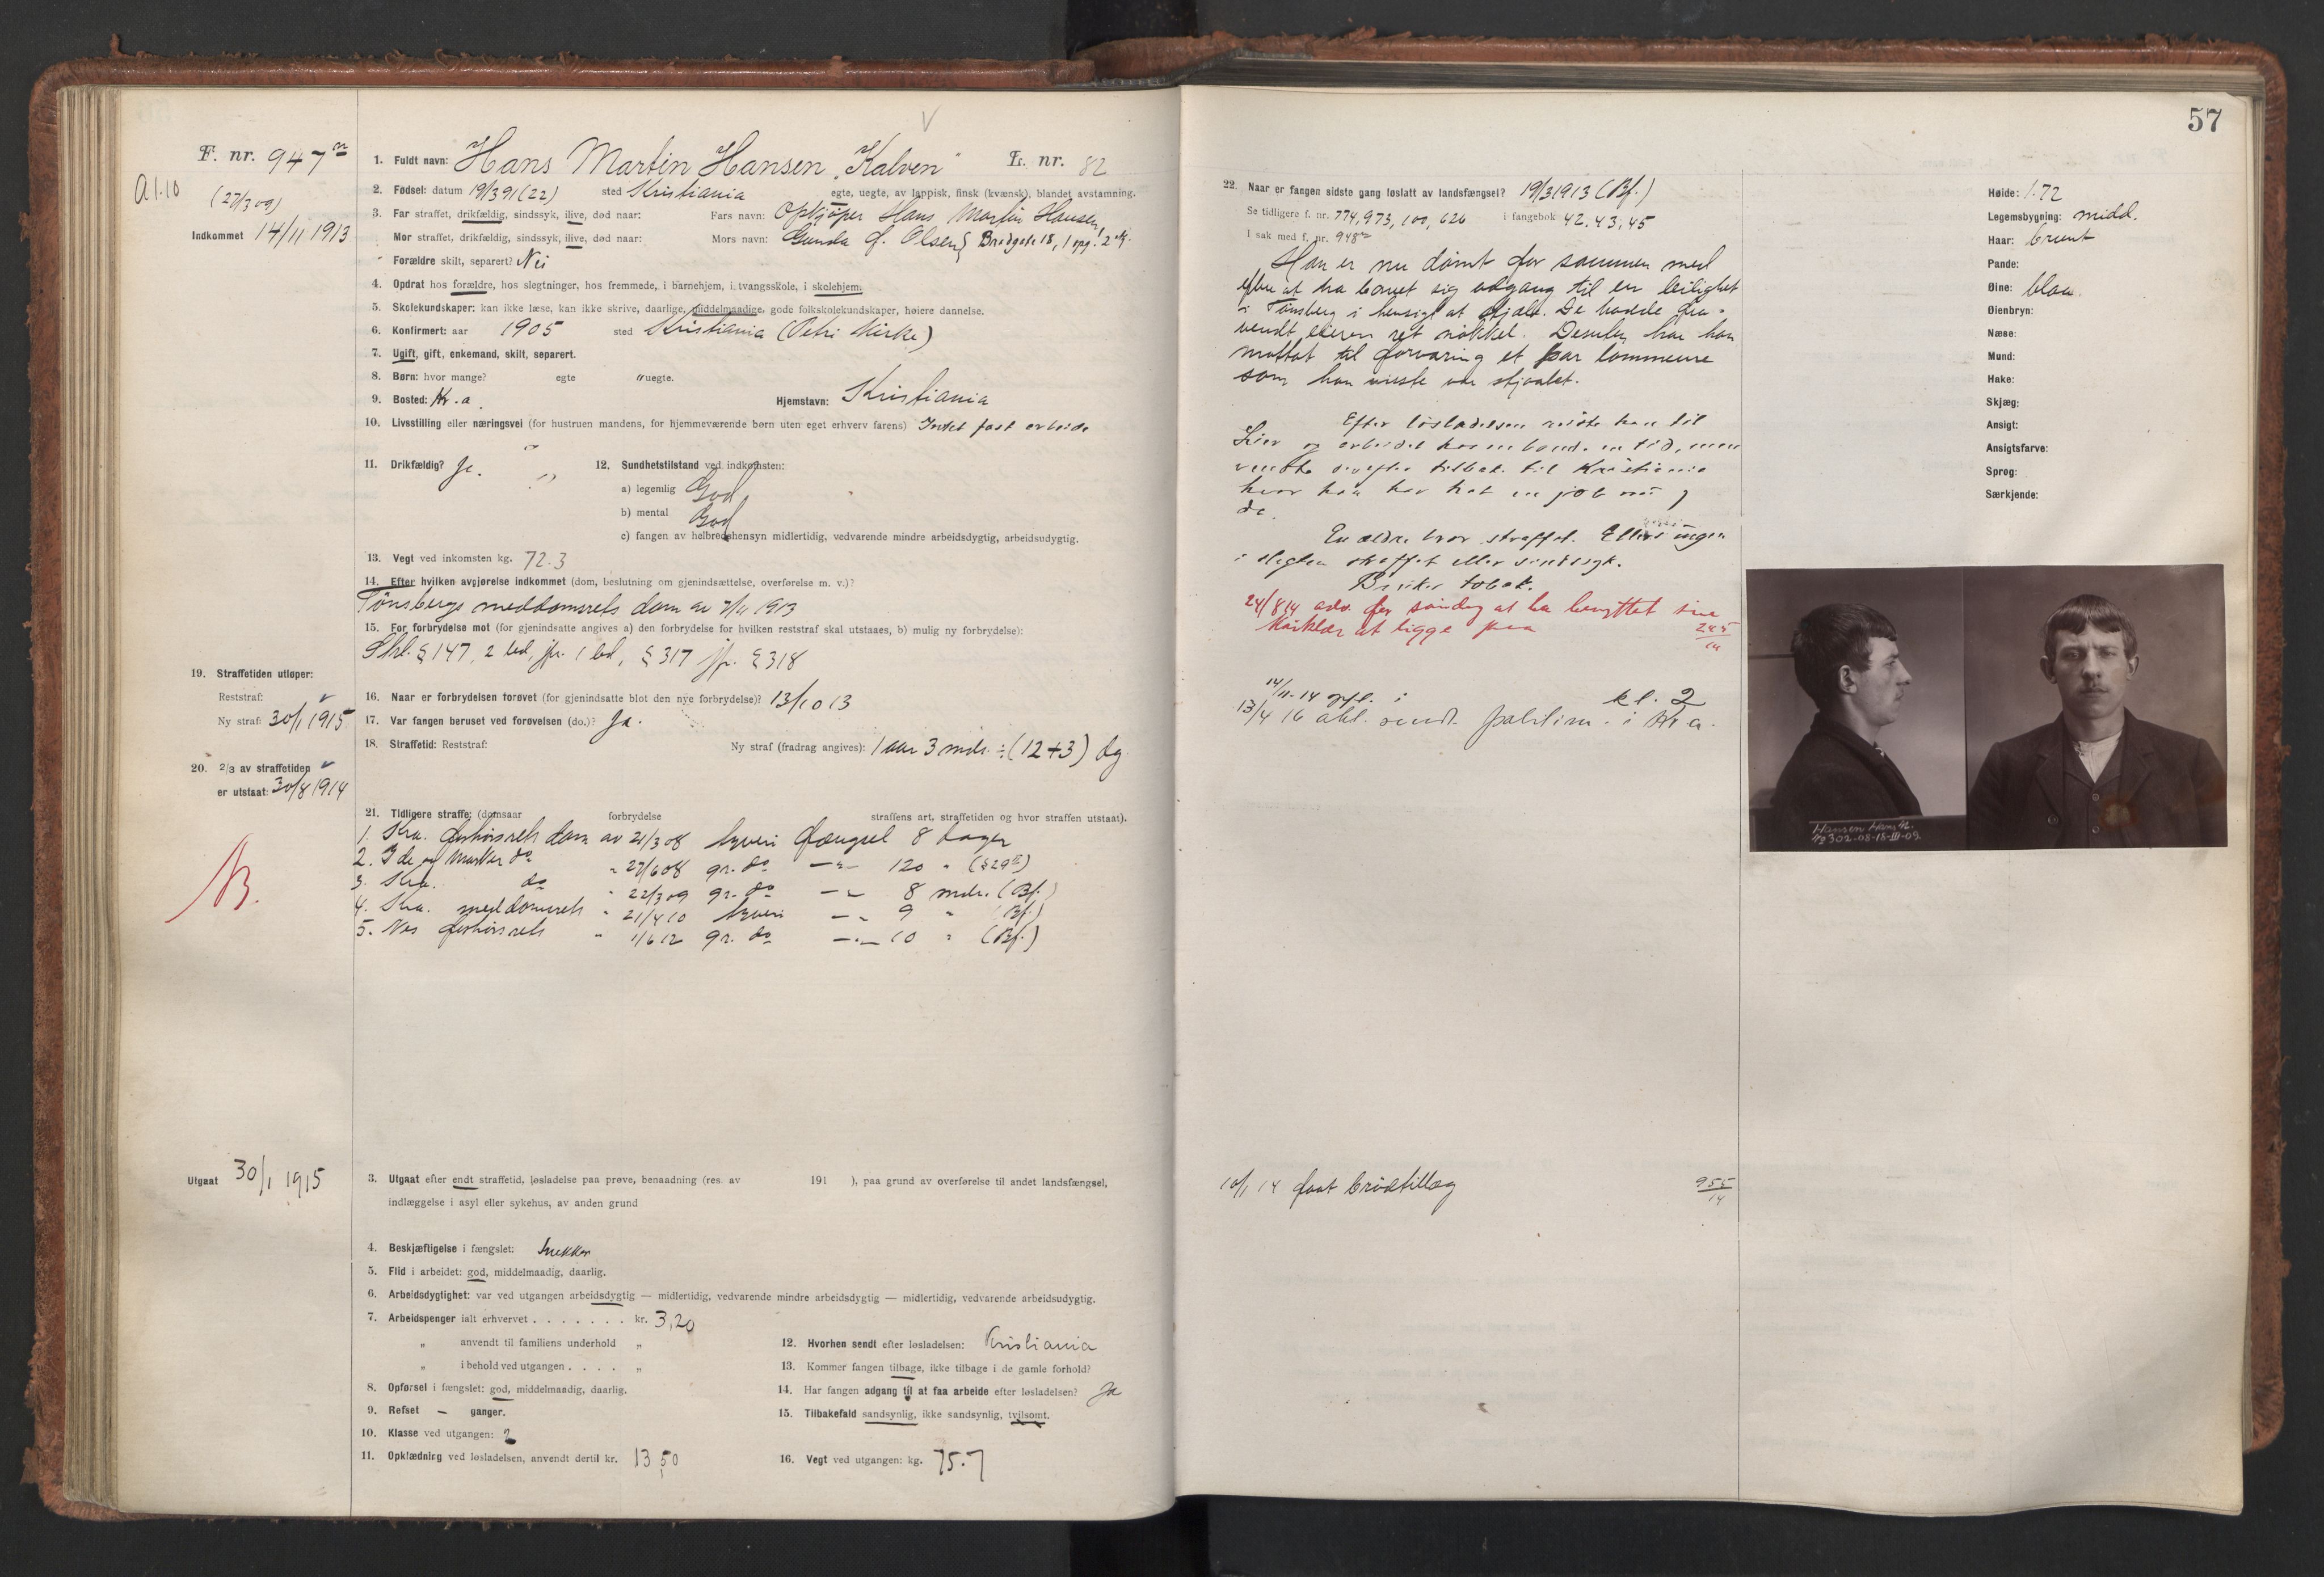 57
F. nr. 947
A 1.10
(27/3 09)
Indkommet 14/11 1913
1. Fuldt navn: Hans Martin Hansen „Kalven" L. nr. 82
2. Fødsel: datum 19/3 91 (22) sted Kristiania egte, uegte, av lappisk, finsk (kvænsk), blandet avstamning.
3. Far straffet, drikfældig, sindssyk, ilive, død naar: Fars navn: Opkjøper Hans Martin Hansen
Mor straffet, drikfældig, sindssyk, ilive, død naar: Mors navn: Gunda f. Olsen Bredgate 18, 1 opg. 2 etg.
Forældre skilt, separert? Nei
4. Opdrat hos forældre, hos slegtninger, hos fremmede, i barnehjem, i tvangsskole, i skolehjem.
5. Skolekundskaper: kan ikke læse, kan ikke skrive, daarlige, middelmaadige, gode folkskolekundskaper, høiere dannelse.
6. Konfirmert: aar 1905 sted Kristiania (Petri Kirke)
7. Ugift, gift, enkemand, skilt, separert.
8. Børn: hvor mange? egte " uegte.
9. Bosted: Kr.a. Hjemstavn: Kristiania
10. Livsstilling eller næringsvei (for hustruen mandens, for hjemmeværende børn uten eget erhverv farens) Intet fast arbeide
11. Drikfældig? Ja. 12. Sundhetstilstand ved indkomsten:
a) legemlig God
b) mental God
c) fangen av helbredshensyn midlertidig, vedvarende mindre arbeidsdygtig, arbeidsudygtig.
13. Vegt ved inkomsten kg. 72.3
14. Efter hvilken avgjørelse indkommet (dom, beslutning om gjenindsættelse, overførelse m. v.)?
Tønsbergs meddomsrets dom av 7/11 1913
15. For forbrydelse mot (for gjenindsatte angives a) den forbrydelse for hvilken reststraf skal utstaaes, b) mulig ny forbrydelse):
Strl. § 147, 2 led, jfr. 1 led, § 317 jfr. § 318
16. Naar er forbrydelsen forøvet (for gjenindsatte blot den nye forbrydelse)? 13/10 13
17. Var fangen beruset ved forøvelsen (do.)? Ja.
18. Straffetid: Reststraf: Ny straf (fradrag angives): 1 aar 3 mdr. ÷ (12+3) dg.
19. Straffetiden utløper:
Reststraf:
Ny straf: 30/1 1915
20. 2/3 av straffetiden
er utstaat: 30/8 1914
21. Tidligere straffe: (domsaar forbrydelse straffens art, straffetiden og hvor straffen utstaat).
1. Kra. forhørsrets dom av 21/3 08 tyveri fængsel 8 dager
2. Ide og Marker do " 27/6 08 gr. do —"— 120 " (§ 29 II)
3. Kra. do " 22/3 09 gr. do —"— 8 mdr. (Bf.)
4. Kra. meddomsrets " 21/4 10 tyveri —"— 9 " (Bf.)
5. Nes forhørsrets " 1/6 12 gr. do —"— 10 " (Bf.)
Utgaat 30/1 1915
3. Utgaat efter endt straffetid, løsladelse paa prøve, benaadning (res. av 191 ), paa grund av overførelse til andet landsfængsel,
indlæggelse i asyl eller sykehus, av anden grund
4. Beskjæftigelse i fængslet: Snekker
5. Flid i arbeidet: god, middelmaadig, daarlig.
6. Arbeidsdygtighet: var ved utgangen arbeidsdygtig — midlertidig, vedvarende mindre arbeidsdygtig — midlertidig, vedvarende arbeidsudygtig.
7. Arbeidspenger ialt erhvervet . . . . . . . kr. 3,20
" anvendt til familiens underhold "
" i behold ved utgangen . . . . "
8. Opførsel i fængslet: god, middelmaadig, daarlig.
9. Refset — ganger.
10. Klasse ved utgangen: 2
11. Opklædning ved løsladelsen, anvendt dertil kr. 13,50
12. Hvorhen sendt efter løsladelsen: Kristiania
13. Kommer fangen tilbage, ikke tilbage i de gamle forhold?
14. Har fangen adgang til at faa arbeide efter løsladelsen? Ja
15. Tilbakefald sandsynlig, ikke sandsynlig, tvilsomt.
16. Vegt ved utgangen: kg. 75.7
22. Naar er fangen sidste gang løslatt av landsfængsel? 19/3 1913 (Bf.)
Se tidligere f. nr. 774, 973, 100, 626 i fangebok 42, 43, 45
I sak med f. nr. 948
Han er nu dømt for sammen med
at ha banet sig adgang til en leilighet
i Tønsberg i hensigt at stjæle. De hadde
vendt eieren ret nøkkel. Desuten har han
mottat til forvaring et par lommeure
som han visste var stjaalet.
Efter løsladelsen reiste han til
Lier og arbeidet hos en bonde en tid, men
vendte tilbake til Kristiania
hvor han har hat en job nu og
da.
En ældre bror straffet. Ellers ingen
i slegten straffet eller sindssyk.
Bruker tobak.
24/8 14 adv. for søndag at ha benyttet sine
at ligge paa
14/11-14 opfl. i kl. 2
13/4 16 akt. sendt politim. i Kr.a.
10/1 14 faat brødtillæg 955/14
Høide: 1.72
Legemsbygning: midd.
Haar: brunt
Pande:
Øine: blaa
Øienbryn:
Næse:
Mund:
Hake:
Skjæg:
Ansigt:
Ansigtsfarve:
Sprog:
Særkjende:
Hansen Hans M.
302-08-18-III-09.